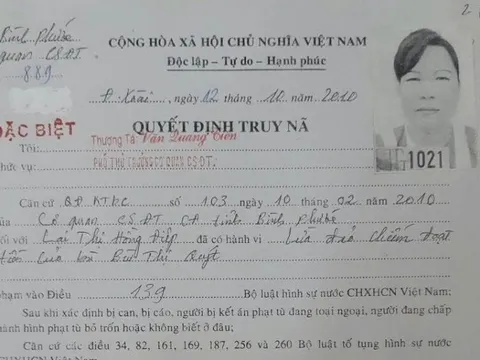 2
Bình Phước
quan CSĐT
889
CỘNG HÒA XÃ HỘI CHỦ NGHĨA VIỆT NAM
Độc lập – Tự do – Hạnh phúc
Đ. Xoài, ngày 12 tháng 10 năm 2010
ĐẶC BIỆT
QUYẾT ĐỊNH TRUY NÃ
1021
Tôi: Thượng Tá: Văn Quang Tiến
chức vụ: PHÓ THỦ TRƯỞNG CƠ QUAN CSĐT.
Căn cứ QĐ KTBC số 103 ngày 10 tháng 02 năm 2010
của Cơ quan CSĐT CA tỉnh Bình Phước
đối với Lại Thị Hồng Điệp đã có hành vi Lừa đảo chiếm đoạt
tiền của bà Bùi Thị Quyt
phạm vào Điều 139 Bộ luật hình sự nước CHXHCN Việt Nam;
Sau khi xác định bị can, bị cáo, người bị kết án phạt tù đang tại ngoại, người đang chấp
hành hình phạt tù bỏ trốn hoặc không biết ở đâu;
Căn cứ các điều 34, 82, 161, 169, 187, 256 và 260 Bộ luật tố tụng hình sự nước
CHXHCN Việt Nam